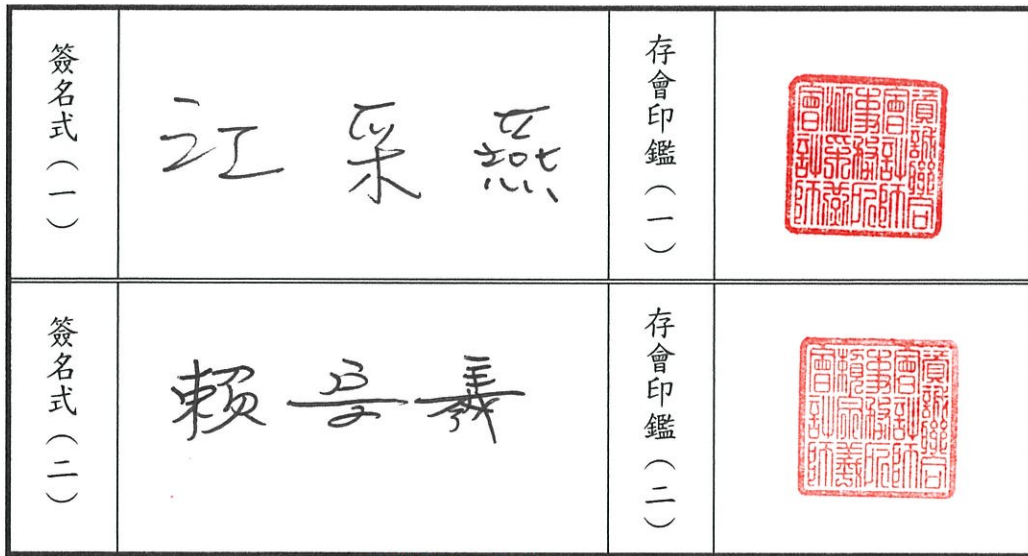 簽名式（一）
江采燕
存會印鑑（一）
資誠聯合
會計師
事務所
江采燕
會計師
簽名式（二）
賴宗羲
存會印鑑（二）
資誠聯合
會計師
事務所
賴宗羲
會計師